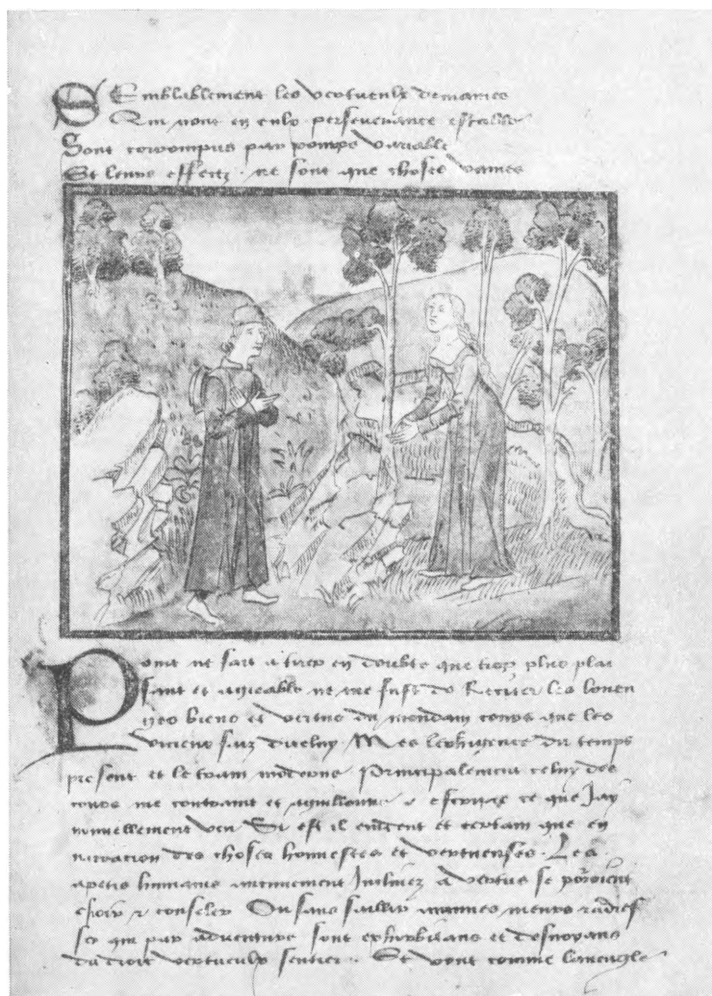 Semblablement les vertueulx demaines
Qui nont en eulx perseverance estable
Sont corrompus par pompe variable
Et leurs effectz ne sont que choses vaines
Point ne fait a tirer en doubte que trop plus plai
sant et agreable ne me fust de Reciter les louen
ges biens et vertus du mondain cours que les
vices Mes lexigence du temps
present et le train moderne Principalement celuy des
cours me contraint et aguillonne a ce que Jay
nouvellement veu Si est il evident et certain que en
narration des choses honnestes et vertueuses. Les
apetis humains Inclinez a vertus se pourroient
choir & consoler Ou sans faillir aucunes meurs
ses qui par adventure sont exhorbitans et desvoyans
du droit vertueulx sentier. Et vont comme laveugle